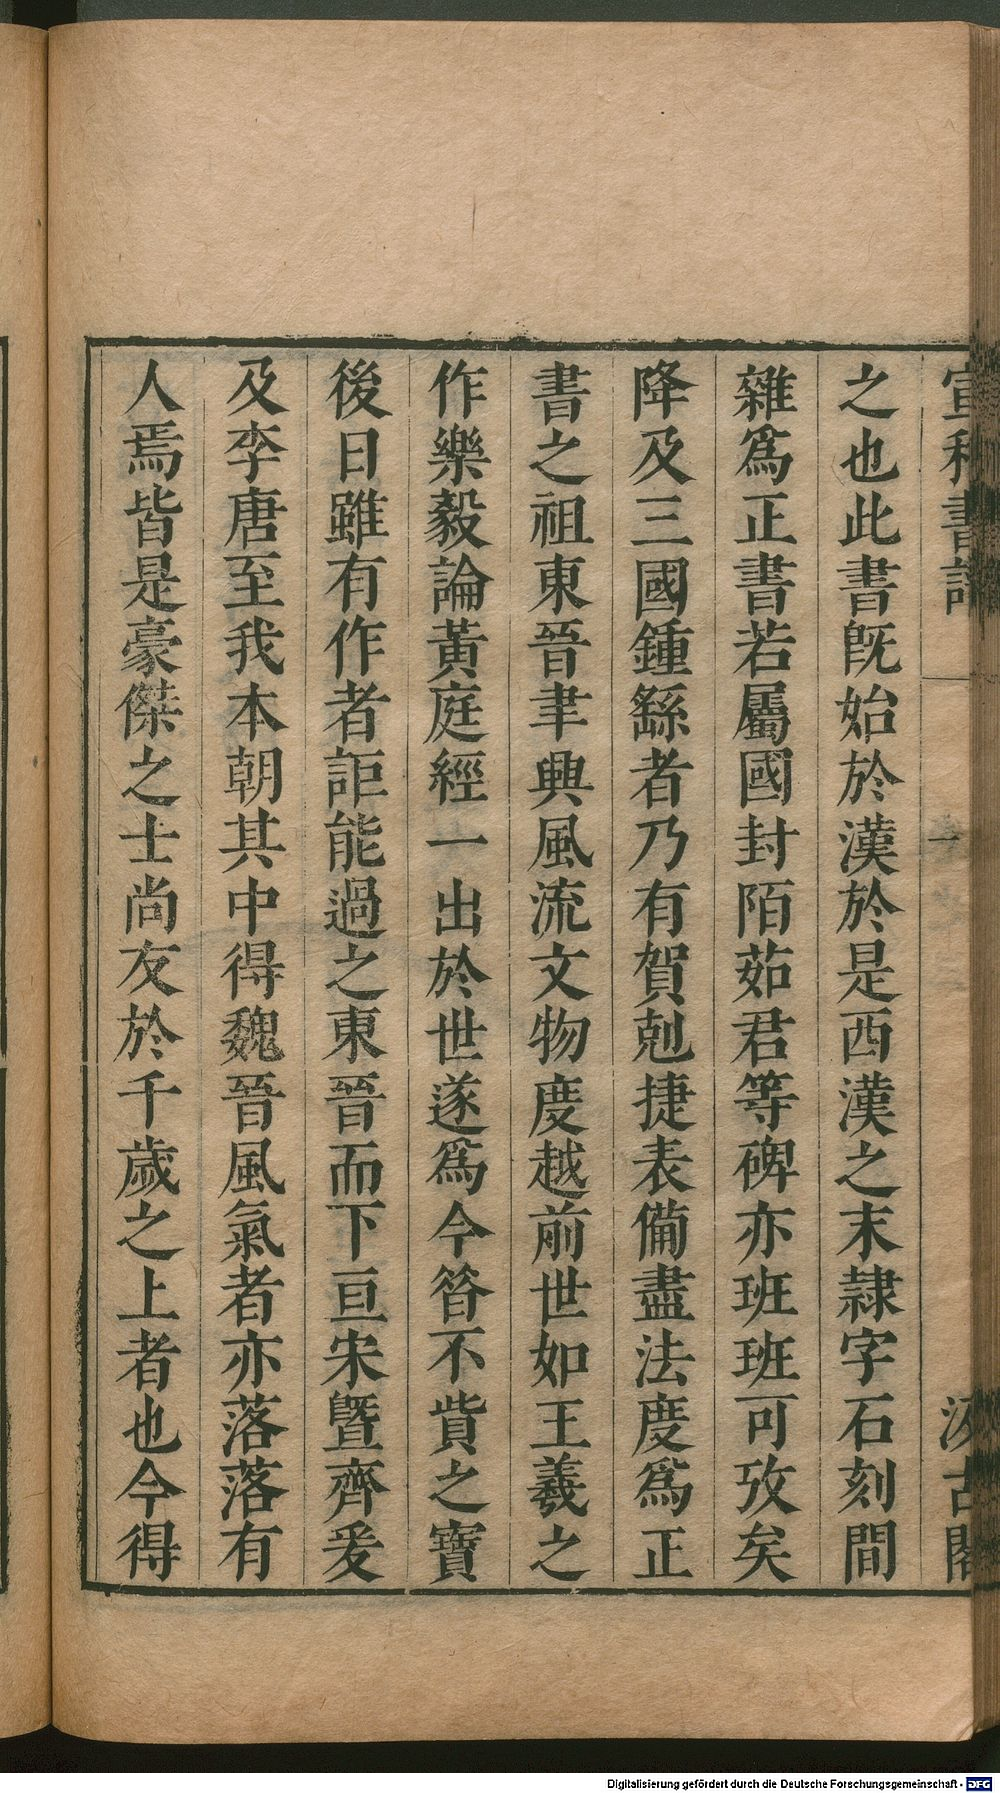 宣和書譜 一 汲古閣
之也此書旣始於漢於是西漢之末隷字石刻間
雜爲正書若屬國封陌茹君等碑亦班班可攷矣
降及三國鍾繇者乃有賀剋捷表備盡法度爲正
書之祖東晉聿興風流文物度越前世如王羲之
作樂毅論黃庭經一出於世遂爲今昝不貲之寶
後日雖有作者詎能過之東晉而下亘宋曁齊爰
及李唐至我本朝其中得魏晉風氣者亦落落有
人焉皆是豪傑之士尚友於千歲之上者也今得
Digitalisierung gefördert durch die Deutsche Forschungsgemeinschaft - DFG